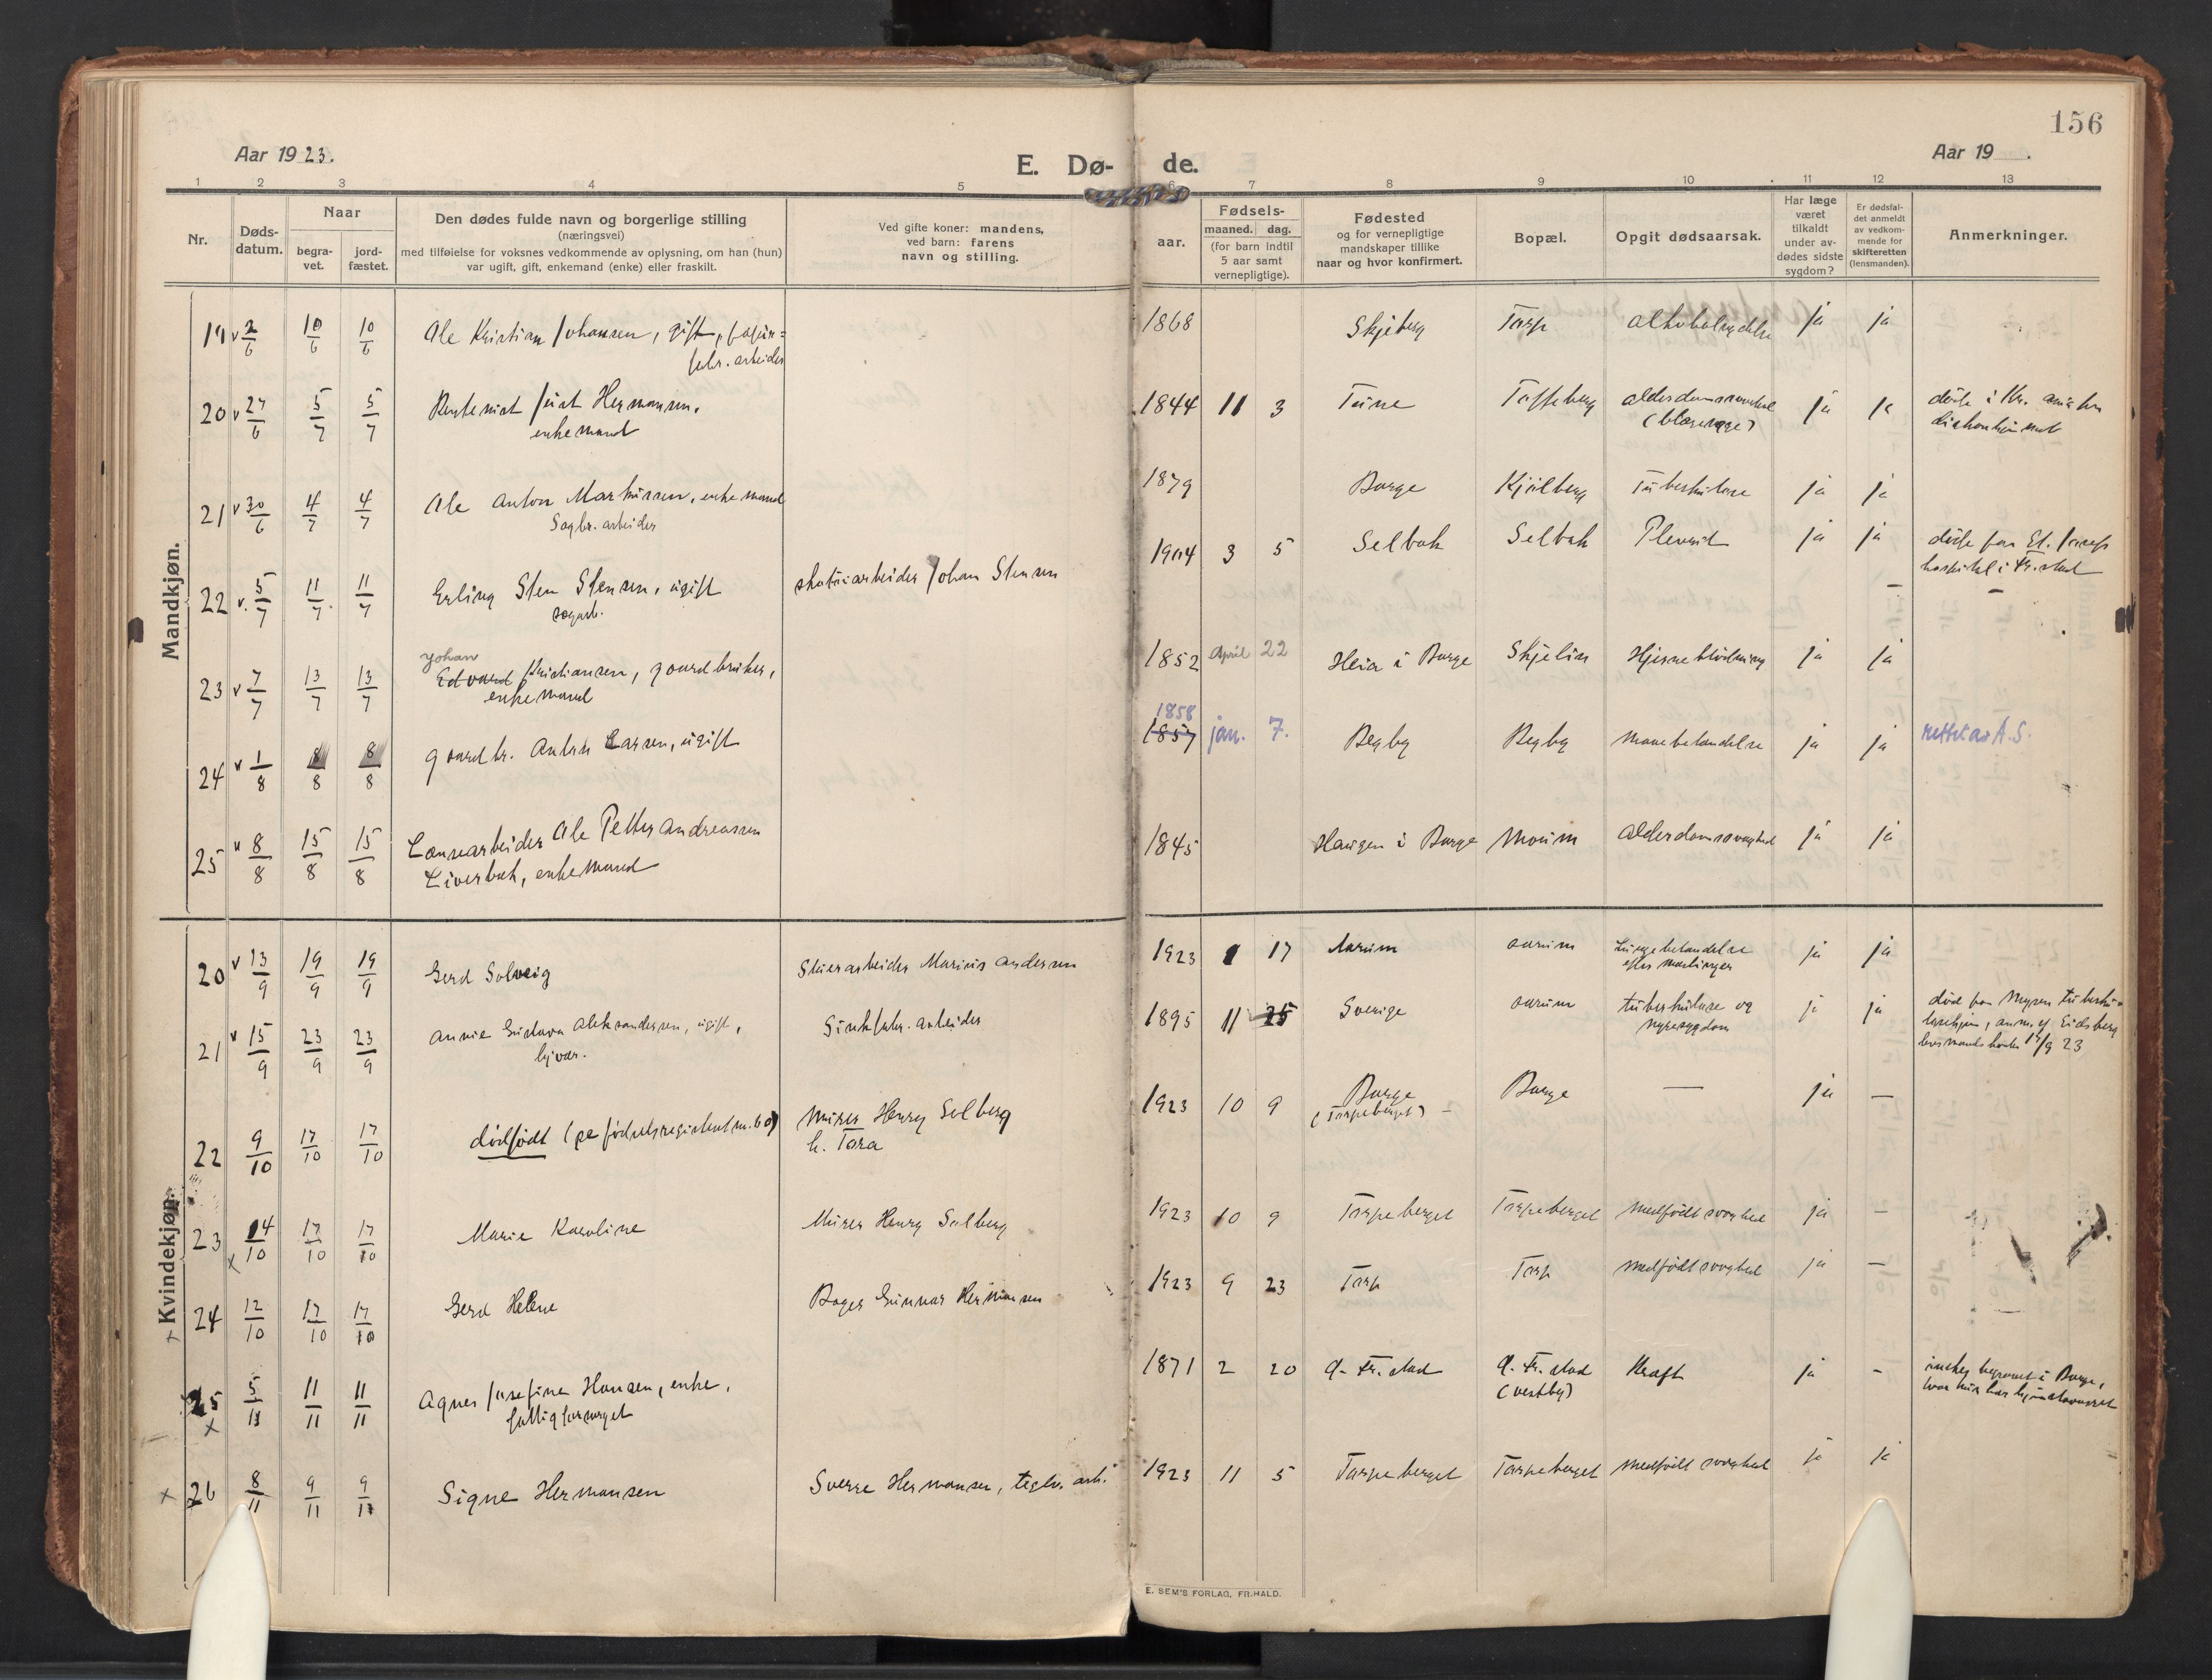 156
Aar 1923.
E. Dø- de.
Aar 19 .
1 2 3 4 5 6 7 8 9 10 11 12 13
Nr.
Døds-
datum.
Naar
begra-
vet.
jord-
fæstet.
Den dødes fulde navn og borgerlige stilling
(næringsvei)
med tilføielse for voksnes vedkommende av oplysning, om han (hun)
var ugift, gift, enkemand (enke) eller fraskilt.
Ved gifte koner: mandens,
ved barn: farens
navn og stilling.
Fødsels-
aar.
maaned. dag.
(for barn indtil
5 aar samt
vernepligtige).
Fødested
og for vernepligtige
mandskaper tillike
naar og hvor konfirmert.
Bopæl.
Opgit dødsaarsak.
Har læge
været
tilkaldt
under av-
dødes sidste
sygdom?
Er dødsfal-
det anmeldt
av vedkom-
mende for
skifteretten
(lensmanden).
Anmerkninger.
Mandkjøn.
19 v 2/6 10/6 10/6 Ole Kristian Johansen, gift, papir=
fabr. arbeider
1868 Skjeberg Torp ja ja
20 v 27/6 5/7 5/7 Just Hermansen,
enkemand
1844 11 3 Tune alderdomssvaghed
ja ja
21 v 30/6 4/7 4/7 Ole Anton Markussen, enkemand
Sagbr. arbeider
1879 Borge Kjølberg Tuberkulose ja ja
22 v. 5/7 11/7. 11/7 Erling Sten Stensen, ugift
sagarb.
skotøiarbeider Johan Stensen
1904 3 5 Selbak Selbak Plevrit ja ja døde paa St. Josefs
hospital i Fr.stad
23 v 7/7 13/7 13/7 Johan
Edvard Kristiansen, gaardbruker,
enkemand
1852 April 22 Heia i Borge Skjelin Hjerneblødning ja ja
24 v 1/8 8/8 8/8 gaardbr. Anton Larsen, ugift
1858
1857 jan. 7. Begby Begby mavebetændelse ja ja rettet av A.S.
25 v 8/8 15/8 15/8 Lænsearbeider Ole Petter Andreassen
Liverbak, enkemand
1845 Haugen i Borge Moum Alderdomssvaghed ja ja
Kvindekjøn.
20 v 13/9 19/9 19/9 Gerd Solveig
Marius Andersen
1923 1 17 Aarum Aarum Lungebetændelse
efter meslinger
ja ja
21 v 15/9 23/9 23/9 Annie Gustava Aleksandersen, ugift,
hjvær.
Sinkfabr. arbeider
1895 11 25 Sverige Aarum tuberkulose og
nyresygdom
ja ja død paa Mysen tuberku-
losehjem, anm. Eidsberg
lensmandskontor 17/9 23
22 9/10 17/10 17/10 dødfødt (se fødselsregisteret nr. 60)
Murer Henry Solberg
h. Tora
1923 10 9 Borge
(Torpeberget) –
Borge — ja —
23 x 14/10 17/10 17/10 Marie Karoline
Murer Henry Solberg
1923 10 9 Torpeberget Torpeberget medfødt svaghed ja –
x 24 12/10 17/10 17/10 Gerd Helene
Bager Gunnar Hermansen
1923 9 23 Torp Torp medfødt svaghed ja —
25 x 5/11 11/11 11/11 Agnes Josefine Hansen, enke,
fattigforsørget
1871 2 20 G. Fr.stad G. Fr.stad
(vestby)
Kræft ja – ønsket begravet i Borge,
hvor hun har
x 26 8/11 9/11 9/11 Signe Hermansen
Sverre Hermansen, teglv. arb.
1923 11 5 Torpeberget Torpeberget medfødt svaghed ja ja
E. SEM'S FORLAG, FR.HALD.